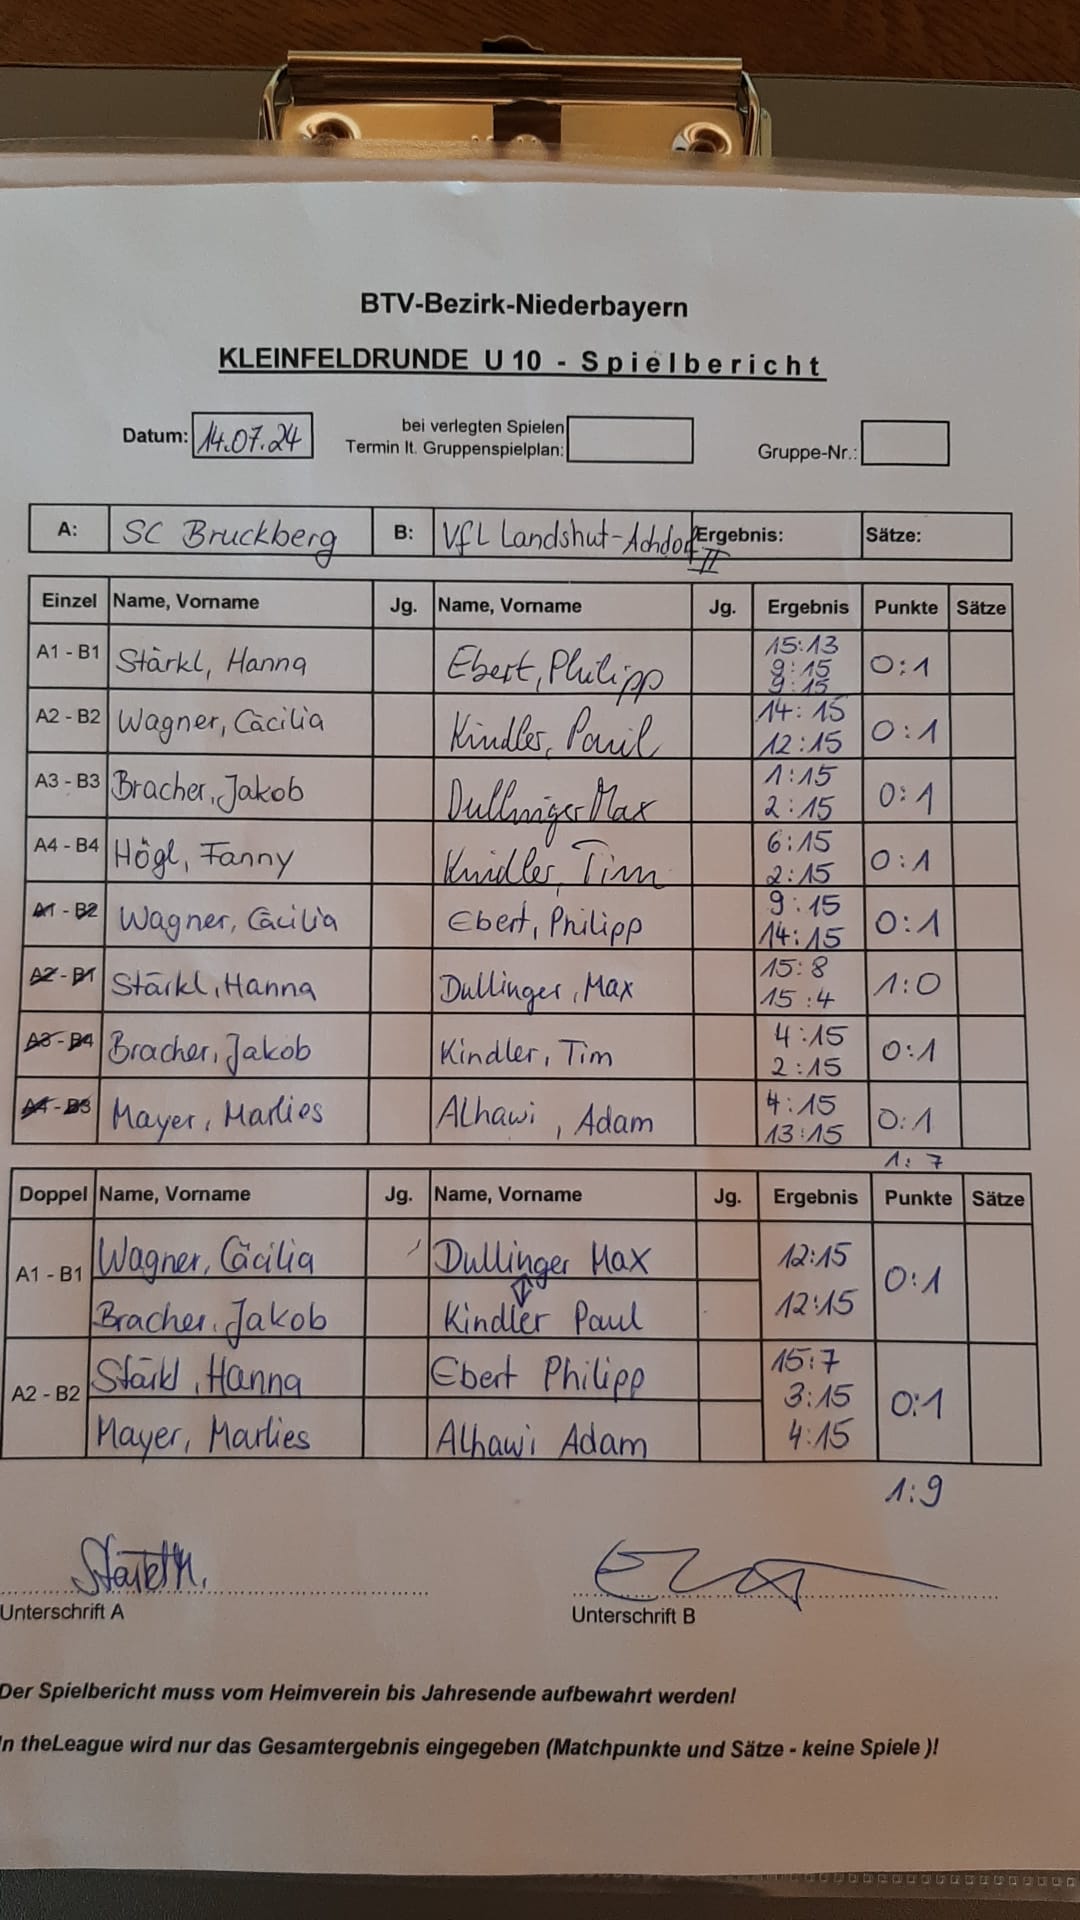 BTV-Bezirk-Niederbayern
KLEINFELDRUNDE U 10 - Spielbericht
Datum: 14.07.24 bei verlegten Spielen Termin lt. Gruppenspielplan: Gruppe-Nr.:
A: SC Bruckberg B: VfL Landshut-Achdorf II Ergebnis: Sätze:
Einzel Name, Vorname Jg. Name, Vorname Jg. Ergebnis Punkte Sätze
A1 - B1 Stärkl, Hanna Ebert, Philipp 15:13 9:15 9:15 0:1
A2 - B2 Wagner, Cäcilia Kindler, Paul 14:15 12:15 0:1
A3 - B3 Bracher, Jakob Dullinger Max 1:15 2:15 0:1
A4 - B4 Högl, Fanny Kindler, Tim 6:15 2:15 0:1
A1 - B2 Wagner, Cäcilia Ebert, Philipp 9:15 14:15 0:1
A2 - B1 Stärkl, Hanna Dullinger, Max 15:8 15:4 1:0
A3 - B4 Bracher, Jakob Kindler, Tim 4:15 2:15 0:1
A4 - B3 Mayer, Marlies Alhawi, Adam 4:15 13:15 0:1
1:7
Doppel Name, Vorname Jg. Name, Vorname Jg. Ergebnis Punkte Sätze
A1 - B1 Wagner, Cäcilia Dullinger Max 12:15 0:1
Bracher, Jakob Kindler Paul 12:15
A2 - B2 Stärkl, Hanna Ebert Philipp 15:7 3:15 0:1
Mayer, Marlies Alhawi Adam 4:15
1:9
Stärkl H.
Unterschrift A Unterschrift B
Der Spielbericht muss vom Heimverein bis Jahresende aufbewahrt werden!
In theLeague wird nur das Gesamtergebnis eingegeben (Matchpunkte und Sätze - keine Spiele )!